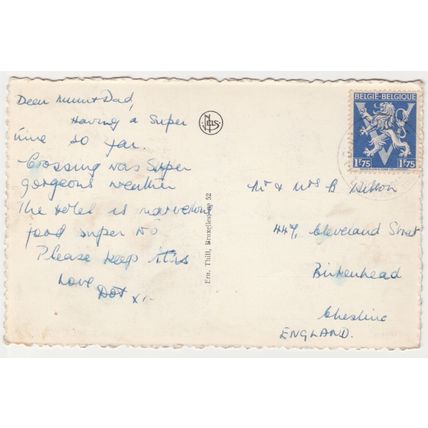 Dear Mum + Dad,
Having a Super
time so far.
Crossing was super
gorgeous weather
the hotel is marvellous
food super too
Please keep this
Love
Dot x
Ern. Thill, Bruxelles
52
NELS
BELGIE-BELGIQUE
1F75 1F75
Mr & Mrs B Hilton
447, Cleveland Street
Birkenhead
Cheshire
ENGLAND.